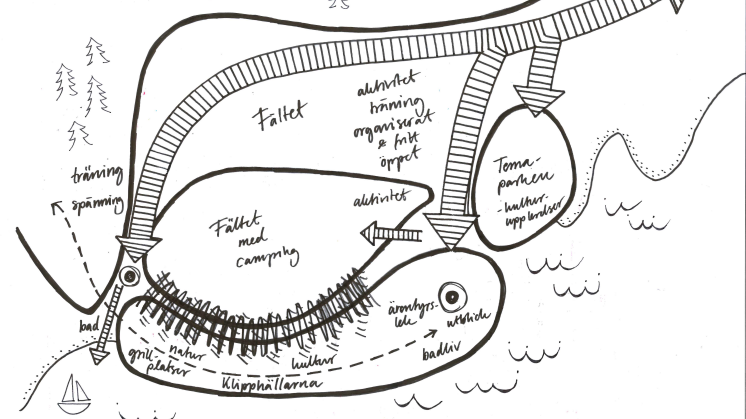 25
Fältet
aktivitet
träning
organiserat
& fritt
öppet
träning
spänning
Fältet
med
camping
aktivitet
Tema-
parken
-kultur-
upplevelser
bad
grill-
platser
natur
kultur
Klipphällarna
äventyrs-
lek
utblick
badliv